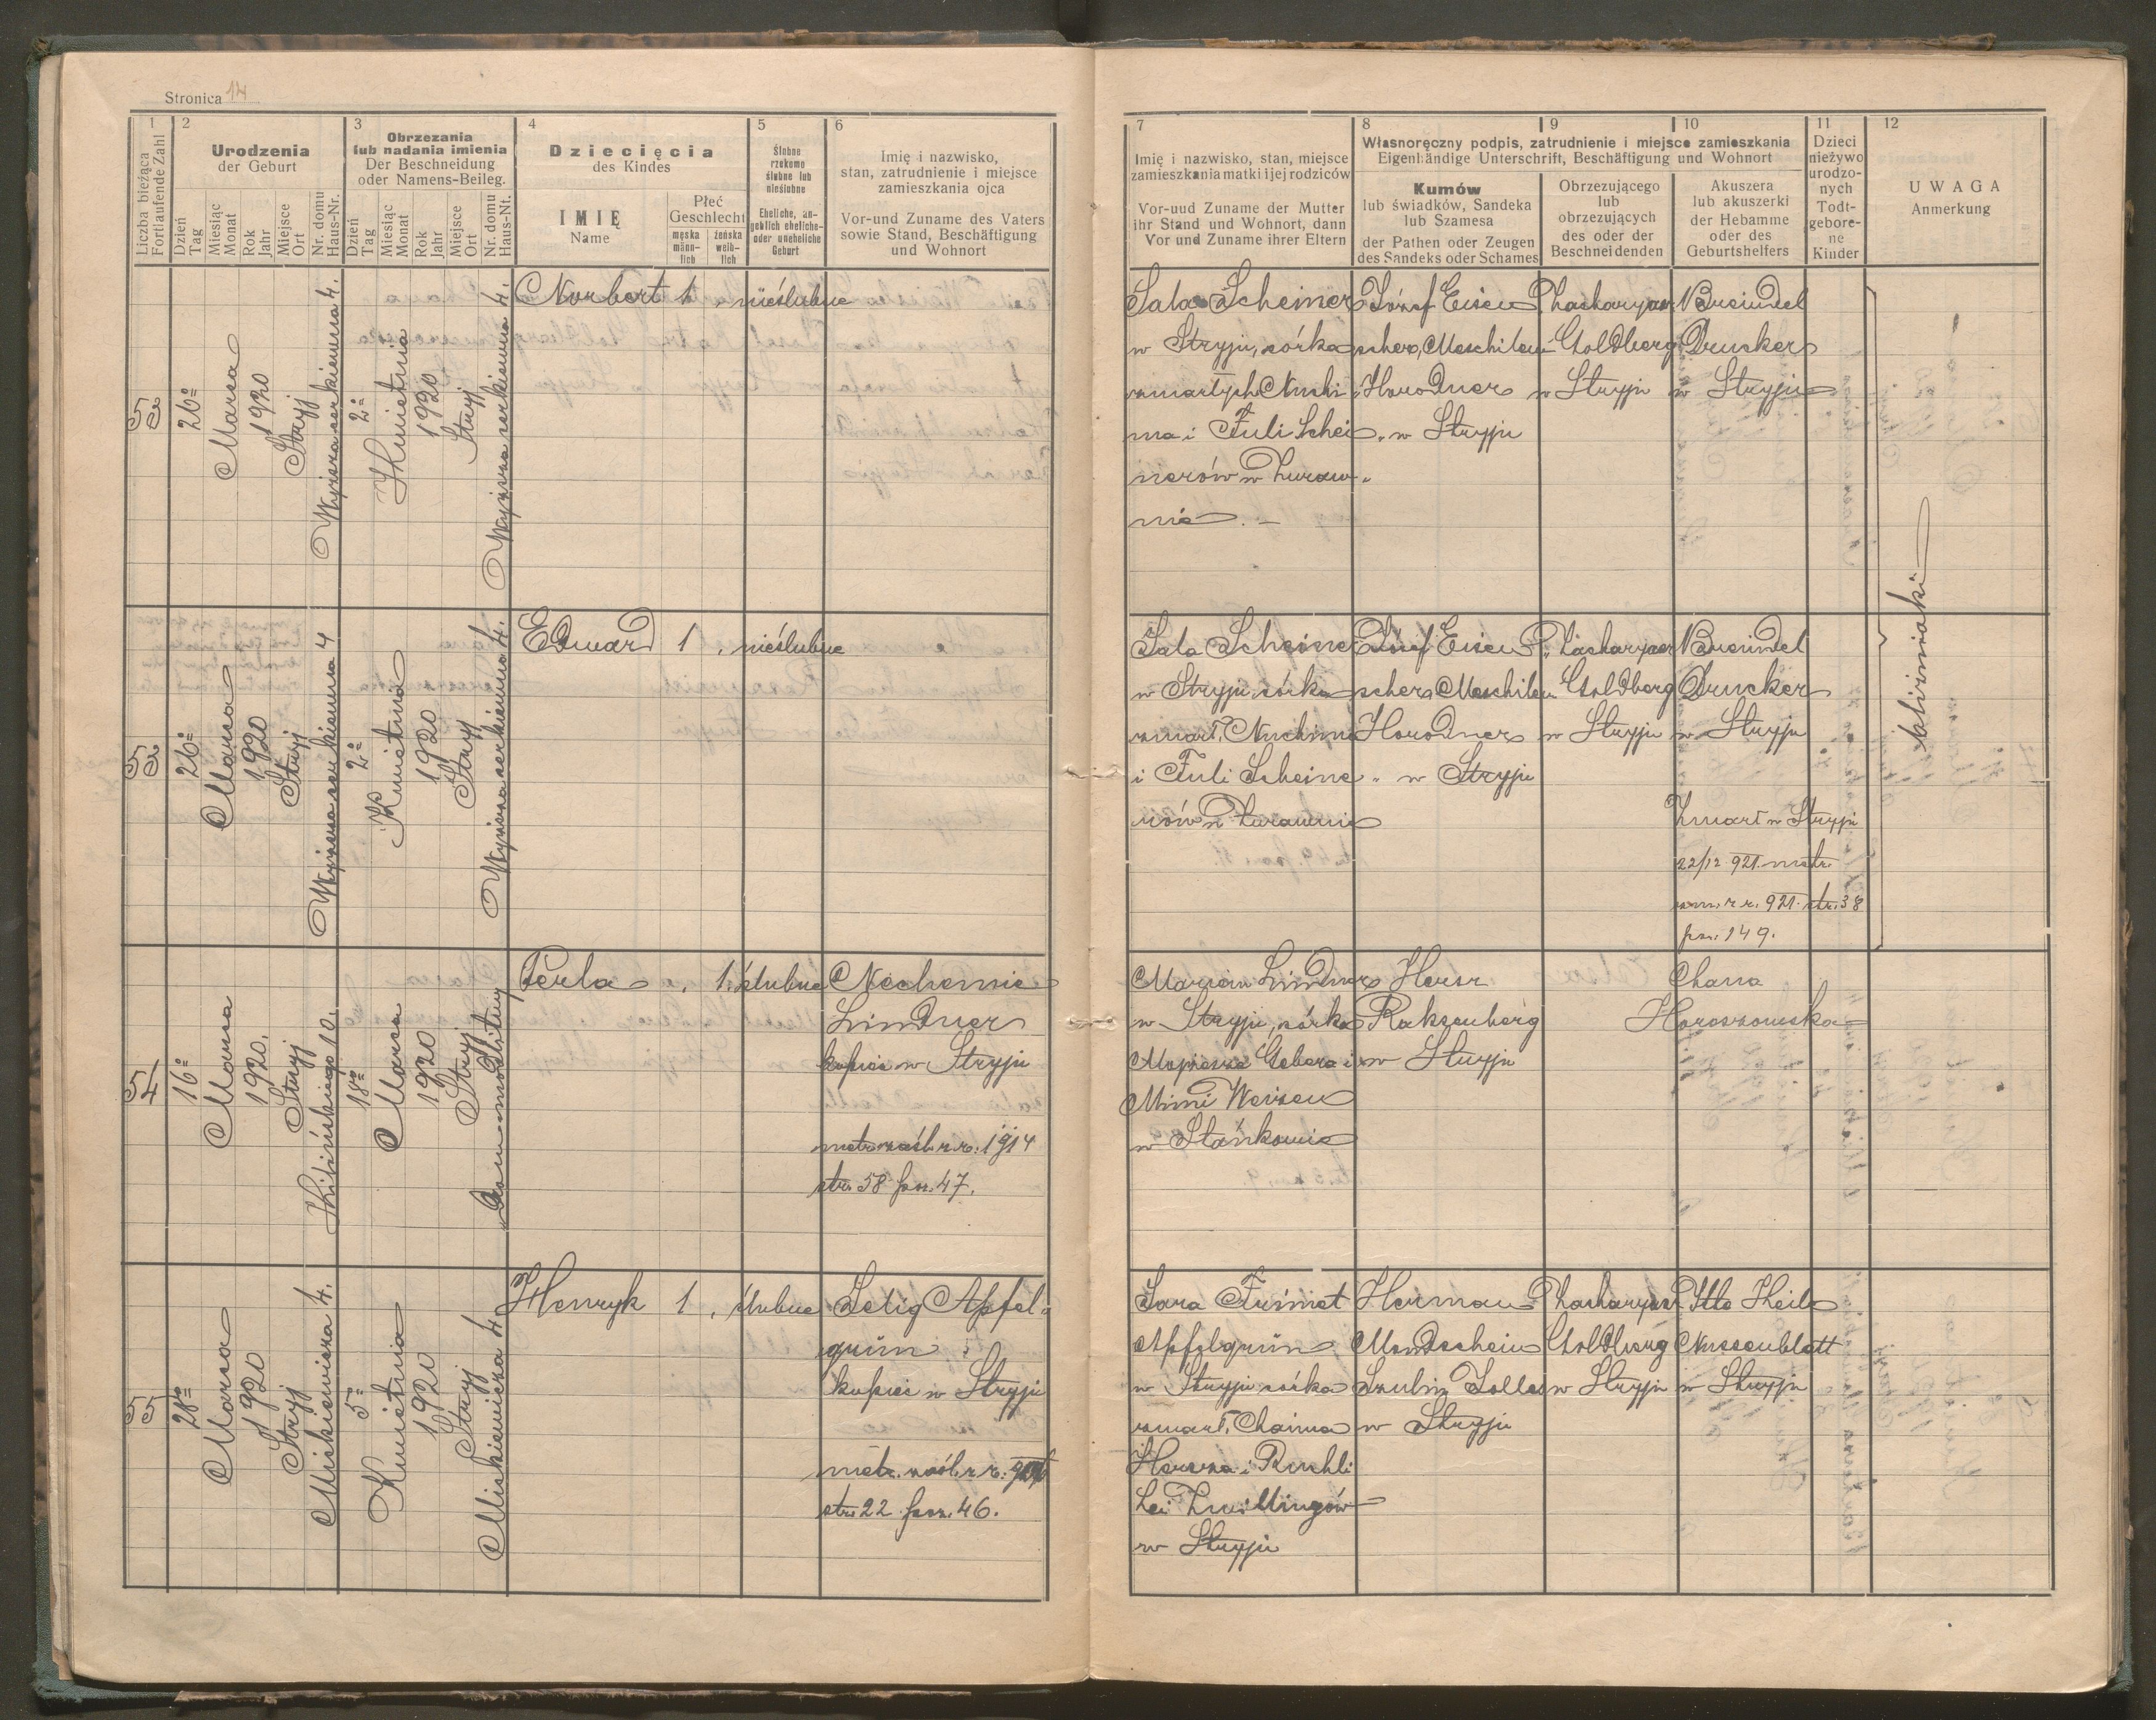 Stronica 14
1
Liczba bieżąca
Fortlaufende Zahl
2
Urodzenia
der Geburt
Dzień
Tag
Miesiąc
Monat
Rok
Jahr
Miejsce
Ort
Nr. domu
Haus-Nr.
3
Obrzezania
lub nadania imienia
Der Beschneidung
oder Namens-Beileg.
Dzień
Tag
Miesiąc
Monat
Rok
Jahr
Miejsce
Ort
Nr. domu
Haus-Nt.
4
Dziecięcia
des Kindes
IMIĘ
Name
Płeć
Geschlecht
męska
männ-
lich
żeńska
weib-
lich
5
Ślubne
rzekomo
ślubne lub
nieślubne
Eheliche, an-
geblich eheliche-
oder uneheliche
Geburt
6
Imię i nazwisko,
stan, zatrudnienie i miejsce
zamieszkania ojca
Vor-und Zuname des Vaters
sowie Stand, Beschäftigung
und Wohnort
7
Imię i nazwisko, stan, miejsce
zamieszkania matki i jej rodziców
Vor-uud Zuname der Mutter
ihr Stand und Wohnort, dann
Vor und Zuname ihrer Eltern
8
9
10
Własnoręczny podpis, zatrudnienie i miejsce zamieszkania
Eigenhändige Unterschrift, Beschäftigung und Wohnort
Kumów
lub świadków, Sandeka
lub Szamesa
der Pathen oder Zeugen
des Sandeks oder Schames
Obrzezującego
lub
obrzezujących
des oder der
Beschneidenden
Akuszera
lub akuszerki
der Hebamme
oder des
Geburtshelfers
11
Dzieci
nieżywo
urodzo-
nych
Todt-
gebore-
ne
Kinder
12
UWAGA
Anmerkung
53
26
Marca
1920
Stryj
4.
2
Kwietnia
1920
Stryj
4.
Norbert 1 nieślubne
Sala Scheiner
w Stryju, córka
zmarłych Nuchi
ma i Fuli Schei
nerów w Żuraw-
nie. –
Józef Eisen
scher, Meschilem
Horodner
w Stryju
Zacharyasz
Goldberg
w Stryju
Breindel
Drucker
w Stryju
bliźniaki
53
26
Marca
1920
Stryj
4
2
Kwietnia
1920
Stryj
4.
Edward 1 nieślubne
Sala Scheine
w Stryju córka
zmarł. Nuchima
i Fuli Scheine
rów w Żurawnie
Józef Eisen
scher Meschilem
Horodner
w Stryju
Zacharyasz
Goldberg
w Stryju
Breindel
Drucker
w Stryju
Zmarł w Stryju
22/12 921. metr.
zm. z r. 921. str. 38
poz. 149.
54
16
Marca
1920.
Stryj
Kilińskiego 10.
18
Marca
1920
Stryj
Dom modlitwy
Perla 1. ślubne
Nechemie
Lindner
kupiec w Stryju
metr. zaśl. z r. 1914
str. 58 poz. 47.
Maryem Lindner
w Stryju, córka
Mojżesza Gebera i
Mimi Weizen
w Stańkowie
Hersz
Raksenberg
w Stryju
Chana
Horoszowska
55
28
Marca
1920
Stryj
Mickiewicza 4.
5
Kwietnia
1920
Stryj
Mickiewicza 4.
Henryk 1. ślubne
Selig Apfel-
grün
kupiec w Stryju
metr. zaśl. z r.
str. 22 poz. 46.
Sara Frimet
Apfelgrün
w Stryju córka
zmarł. Chaima
Hersza i Ruchli
Lei Zwillingów
w Stryju
Herman
Mondschein
Szulim Solles
w Stryju
Zacharyasz
Goldberg
w Stryju
Itte Theile
Nussenblatt
w Stryju